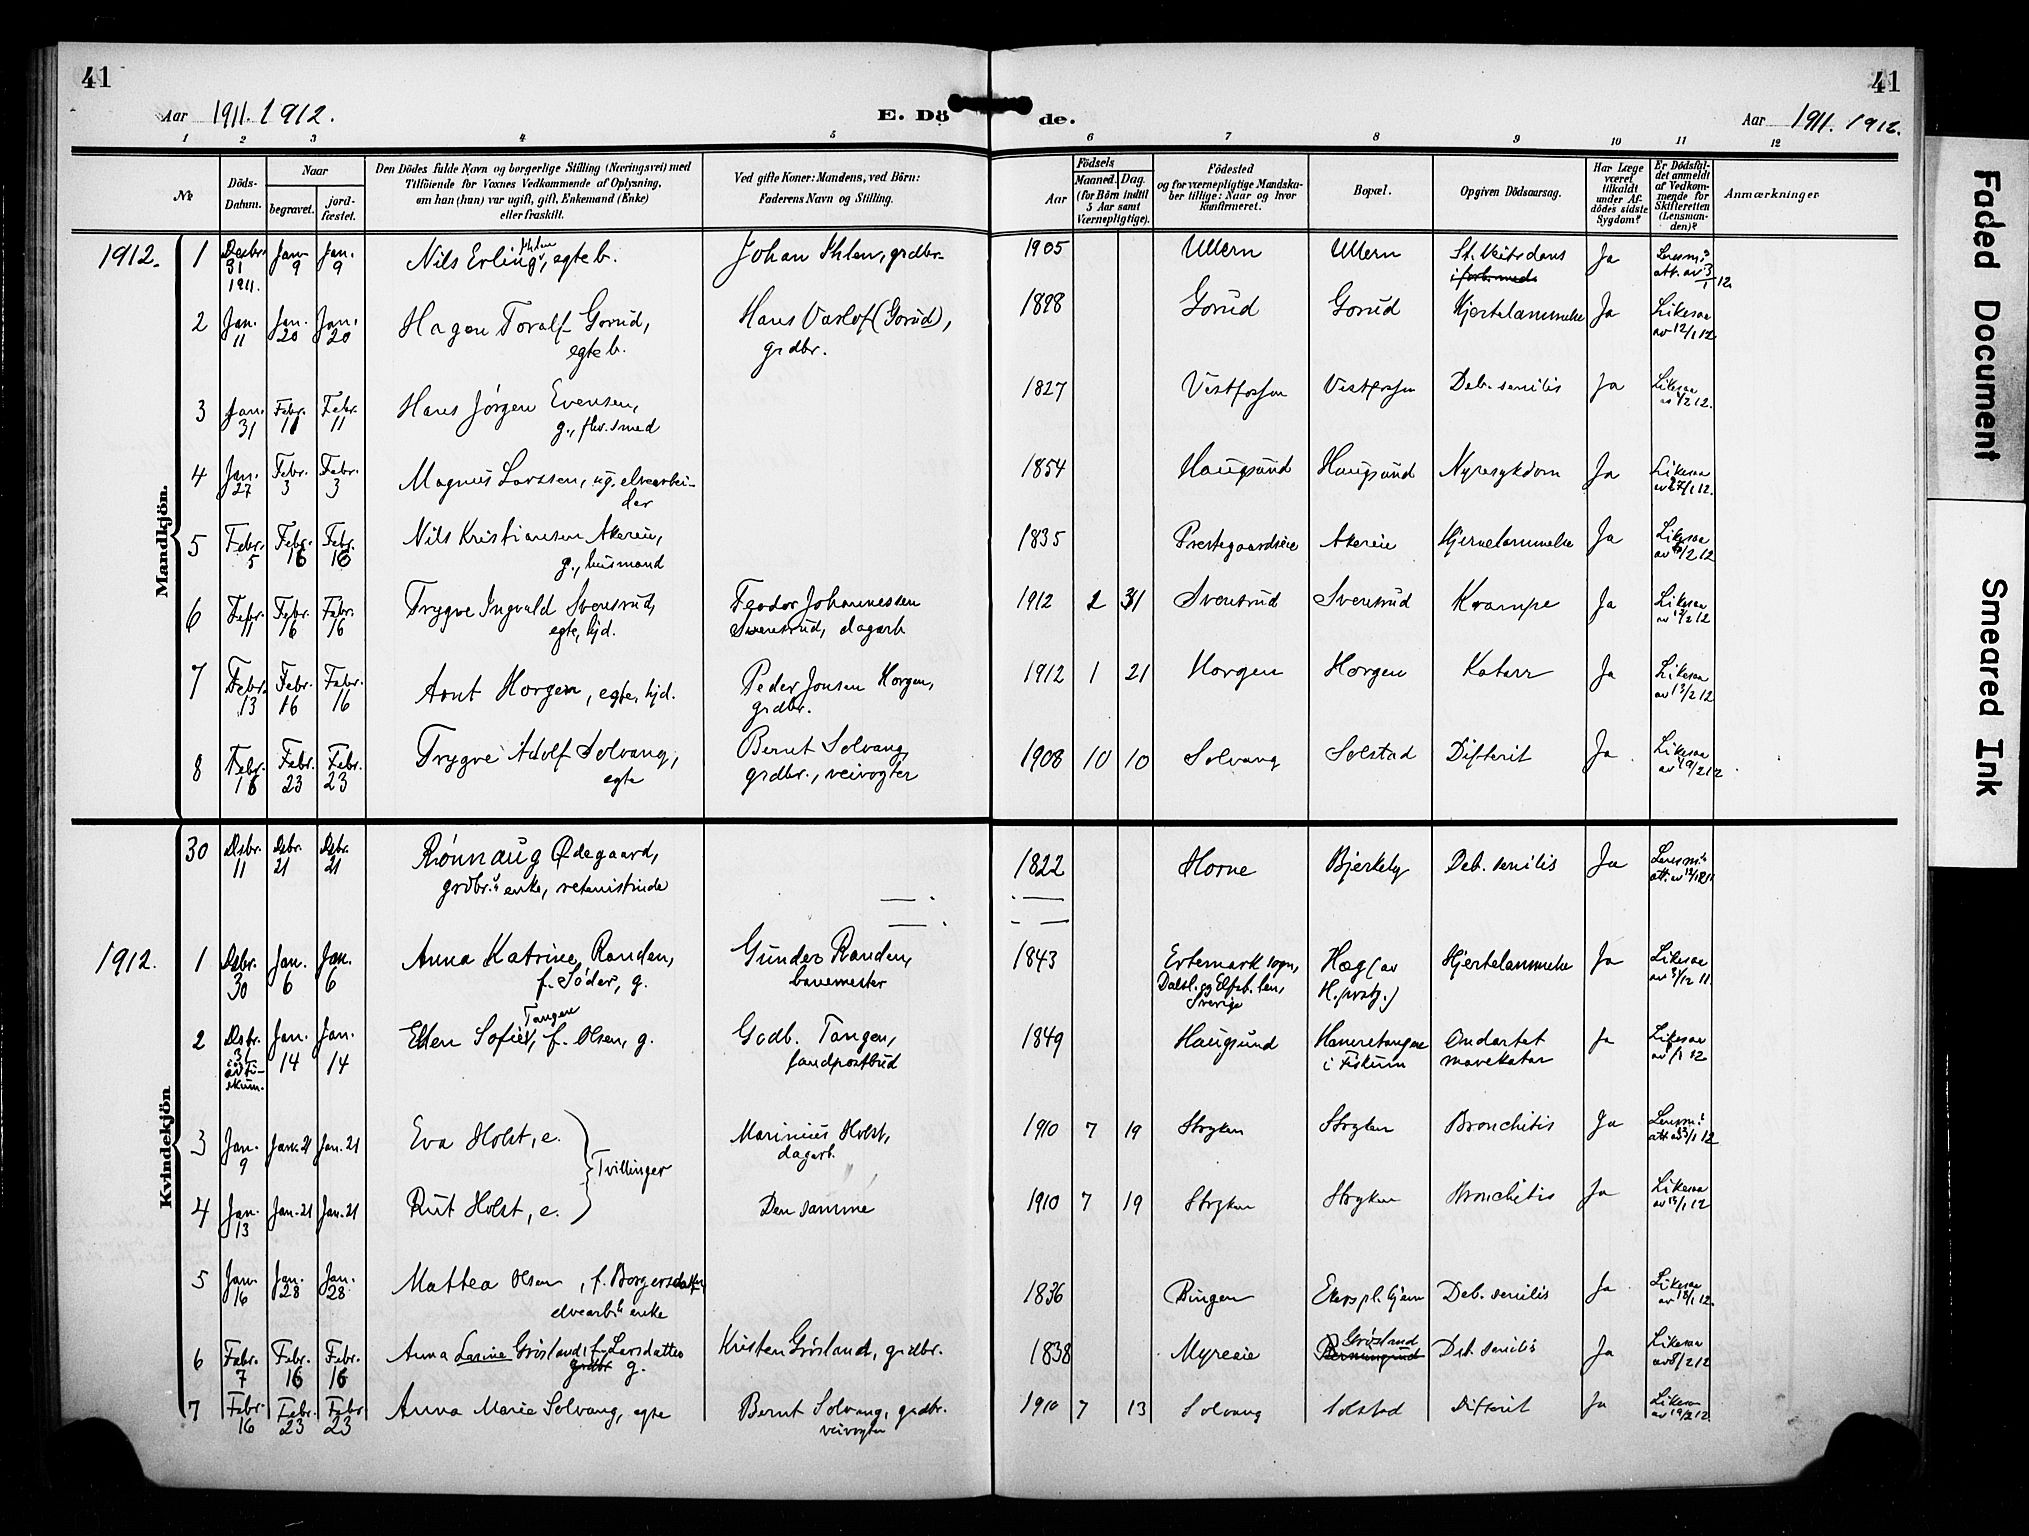 41
41
Aar 1911. 1912.
E. Dö de.
Aar 1911. 1912.
1 2 3 4 5 6 7 8 9 10 11 12
No.
Döds-Datum.
Naar
begravet.
jord-fæstet.
Den Dödes fulde Navn og borgerlige Stilling (Næringsvei) med
Tilföiende for Voxnes Vedkommende af Oplysning,
om han (hun) var ugift, gift, Enkemand (Enke)
eller fraskilt.
Ved gifte Koner: Mandens, ved Börn:
Faderens Navn og Stilling.
Födsels
Aar
Maaned. Dag.
(for Börn indtil
5 Aar samt
Værnepligtige).
Födested
og for værnepligtige Mandska-
ber tillige: Naar og hvor
konfirmeret.
Bopæl.
Opgiven Dödsaarsag.
Har Læge
været
tilkaldt
under Af-
dödes sidste
Sygdom?
Er Dödsfal-
det anmeldt
af Vedkom-
mende for
Skifteretten
(Lensman-
den)?
Anmærkninger
Mandkjön.
1912. 1 Desbr. 31 1911. Jan. 9 Jan. 9 Nils Erling Ihlen, egte b. Johan Ihlen, grdbr. 1905 Ullern Ullern St. Veitsdans Ja Lensm.s att. av 3/1 12.
2 Jan. 11 Jan. 20 Jan. 20 Hagen Toralf Gorud, egte b. Hans Oaslof (Gorud), grdbr. 1898 Gorud Gorud Hjertelammelse Ja Likesaa av 12/1 12
3 Jan. 31 Febr. 11 Febr. 11 Hans Jørgen Evensen, g., fhv. smed 1827 Vestfossen Vestfossen Deb. senilis Ja Likesaa 12.
4 Jan. 27 Febr. 3 Febr. 3 Magnus Larssen, ug. elvearbei-der 1854 Haugsund Haugsund Nyresykdom Ja Likesaa av 27/1 12.
5 Febr. 5 Febr. 16 Febr. 16 Nils Kristiansen Akereie, g., husmand 1835 Prestegaardseie Akereie Hjernelammelse Ja Likesaa 12
6 Febr. 11 Febr. 16 Febr. 16 Trygve Ingvald Svensrud, egte, hjd. Teodor Johannessen Svensrud, dagarb. 1912 2 31 Svensrud Svensrud Krampe Ja Likesaa 12
7 Febr. 13 Febr. 16 Febr. 16 Arnt Horgen, egte, hjd. Peder Jonsen Horgen, grdbr. 1912 1 21 Horgen Horgen Katarr Ja Likesaa av 13/2 12
8 Febr. 16 Febr. 23 Febr. 23 Trygve Adolf Solvang, egte Bernt Solvang grdbr., veivogter 1908 10 10 Solvang Solstad Difterit Ja Likesaa av 19/2 12.
Kvindekjön
30 Dsbr. 11 Dsbr. 21 Dsbr. 21 Rønnaug Ødegaard, grdbr.s enke, 1822 Horne Bjerkeby Deb. senilis Ja Lensm.s att. av
1912. 1 Dsbr. 30 Jan. 6 Jan. 6 Anna Katrine Randen, f. Söder, g. Gunder Randen, banemester 1843 Ertemark sogn, Dalsl. og Elfsb. len, Sverige Hæg (av H. prstg.) Hjertelammelse Ja Likesaa av 31/12 11.
2 Dsbr. 31 Jan. 14 Jan. 14 Ellen Sofie Tangen, f. Olsen, g. Godb. Tangen, landpostbud 1849 Haugsund i Fiskum Ondartet mavekatar Ja Likesaa 12
3 Jan. 9 Jan. 21 Jan. 21 Eva Holst, e. Marinius Holst, dagarb. 1910 7 19 Stryken Stryken Bronchitis Ja Lensm.s att. av 12
Tvillinger
4 Jan. 13 Jan. 21 Jan. 21 Rut Holst, e. Den samme 1910 7 19 Stryken Stryken Bronchitis Ja Likesaa av 12
5 Jan. 16 Jan. 28 Jan. 28 Mattea Olsen, f. Borgersdatter, elvearb.s enke 1836 Ringen Ekers pl. hjem Deb. senilis Ja Likesaa av 18/1 12.
6 Febr. 7 Febr. 16 Febr. 16 Anna Larine Grösland, f. Larsdatter grdbr g. Kristen Grösland, grdbr. 1838 Myreeie Grösland Deb. senilis Ja Likesaa av 8/2 12
7 Febr. 16 Febr. 23 Febr. 23 Anna Marie Solvang, egte Bernt Solvang, grdbr. veivogter 1910 7 13 Solvang Solstad Difterit Ja Likesaa av 19/2 12.
Faded Document
Smeared Ink